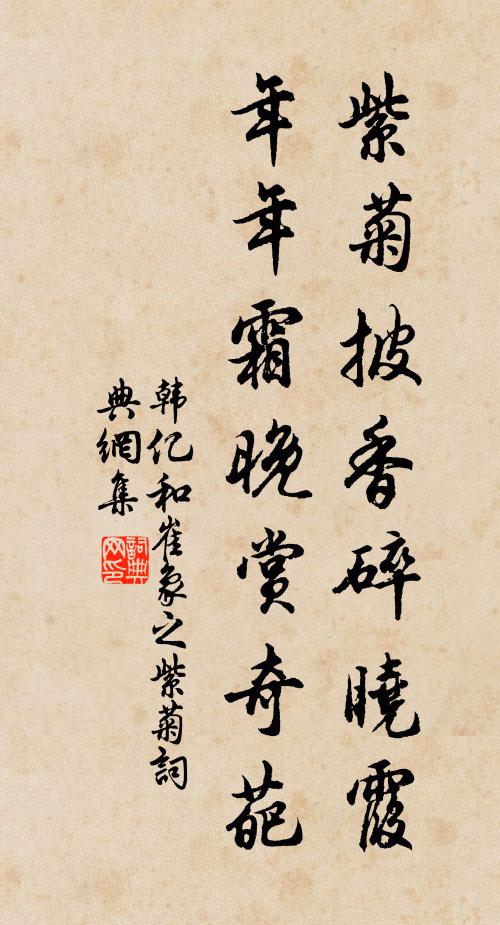 紫菊披香碎曉霞
年年霜晚賞奇葩
韩亿和崔象之紫菊詞
典網集
詞典网印